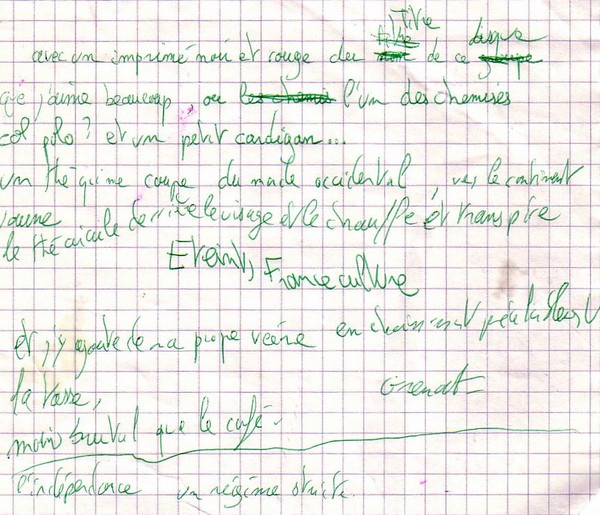 titre disque
avec un imprimé noir et rouge du de ce
que j'aime beaucoup, ou l'un des chemises
col polo? et un petit cardigan...
un thé qui me coupe du monde occidental, vers le continent
jaune
le thé circule derrière le visage et le chauffe et transpire
Eteints France culture
et j'y ajoute de ma propre veine en choisissant
la tasse, Grenat
moins brutal que le café.
l'indépendance un régime strict.